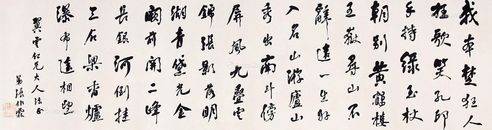 我本楚狂人
狂歌笑孔邱
手持綠玉杖
朝別黃鶴樓
五嶽尋山不
辭遠一生好
入名山遊廬山
秀出南斗傍
屏風九疊雲
錦張影落明
湖青黛光金
闕前開二峰
長銀河倒挂
三石梁香爐
瀑布遙相望
翼雲仁兄大人法正
弟張